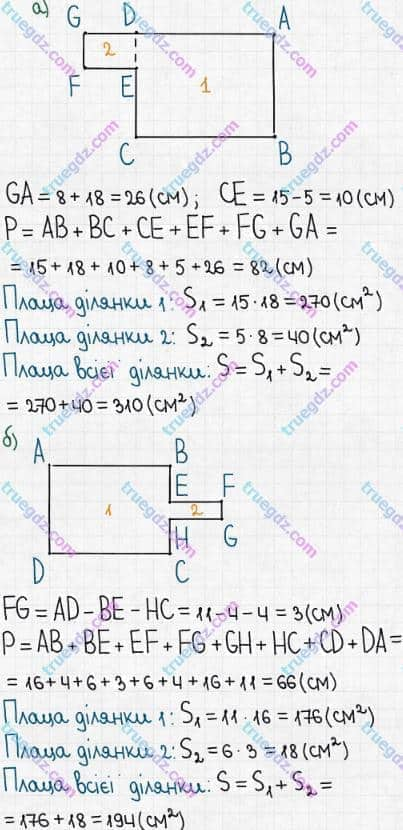 а)
G D A
2
F E 1
C B
GA = 8 + 18 = 26 (см); CE = 15 - 5 = 10 (см)
P = AB + BC + CE + EF + FG + GA =
= 15 + 18 + 10 + 8 + 5 + 26 = 82 (см)
Площа ділянки 1: S₁ = 15 · 18 = 270 (см²)
Площа ділянки 2: S₂ = 5 · 8 = 40 (см²)
Площа всієї ділянки: S = S₁ + S₂ =
= 270 + 40 = 310 (см²)
б)
A B
E F
1 2
H G
D C
FG = AD - BE - HC = 11 - 4 - 4 = 3 (см)
P = AB + BE + EF + FG + GH + HC + CD + DA =
= 16 + 4 + 6 + 3 + 6 + 4 + 16 + 11 = 66 (см)
Площа ділянки 1: S₁ = 11 · 16 = 176 (см²)
Площа ділянки 2: S₂ = 6 · 3 = 18 (см²)
Площа всієї ділянки: S = S₁ + S₂ =
= 176 + 18 = 194 (см²)
truegdz.com